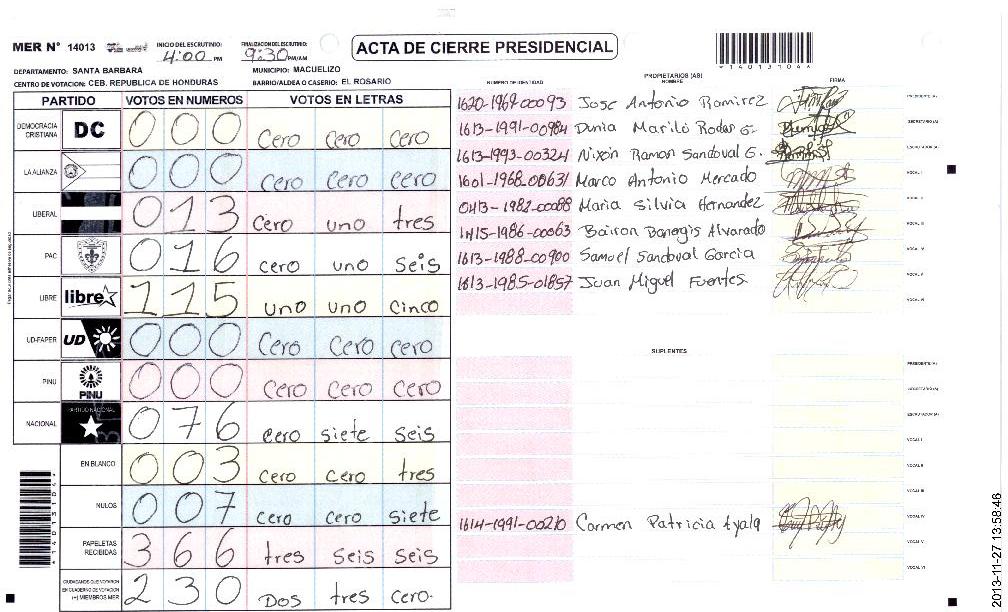 MER N° 14013 INICIO DEL ESCRUTINIO: 4:00 PM FINALIZACION DEL ESCRUTINIO: 9:30 PM/AM ACTA DE CIERRE PRESIDENCIAL
DEPARTAMENTO: SANTA BARBARA MUNICIPIO: MACUELIZO
CENTRO DE VOTACION: CEB. REPUBLICA DE HONDURAS BARRIO/ALDEA O CASERIO: EL ROSARIO
PARTIDO VOTOS EN NUMEROS VOTOS EN LETRAS
DEMOCRACIA CRISTIANA DC 000 Cero Cero Cero
LA ALIANZA 000 Cero Cero Cero
LIBERAL 013 Cero uno tres
PAC 016 cero uno seis
LIBRE libre 115 uno uno cinco
UD-FAPER UD 000 Cero Cero Cero
PINU PINU 000 Cero Cero Cero
NACIONAL PARTIDO NACIONAL 076 cero siete seis
EN BLANCO 003 cero cero tres
NULOS 007 cero cero siete
PAPELETAS RECIBIDAS 366 tres seis seis
CIUDADANOS QUE VOTARON EN CUADERNO DE VOTACION (+) MIEMBROS MER 230 Dos tres cero.
*14013104*
NUMERO DE IDENTIDAD PROPIETARIOS (AS) NOMBRE FIRMA
1620-1969-00093 Jose Antonio Ramirez PRESIDENTE (A)
1613-1991-00984 Dunia Mariló Rodas G. SECRETARIO (A)
1613-1993-00324 Nixon Ramon Sandoval G. ESCRUTADOR (A)
1601-1968-00631 Marco Antonio Mercado VOCAL I
0413-1982-00088 Maria Silvia Hernandez VOCAL II
1415-1986-00063 Bairon Alvarado VOCAL III
1613-1988-00900 Samuel Sandoval Garcia VOCAL IV
1613-1985-01857 Juan Miguel Fuentes VOCAL V
VOCAL VI
SUPLENTES
PRESIDENTE (A)
SECRETARIO (A)
ESCRUTADOR (A)
VOCAL I
VOCAL II
VOCAL III
1614-1991-00210 Carmen Patricia Ayala VOCAL IV
VOCAL V
VOCAL VI
*14013104*
2013-11-27 13:58:46